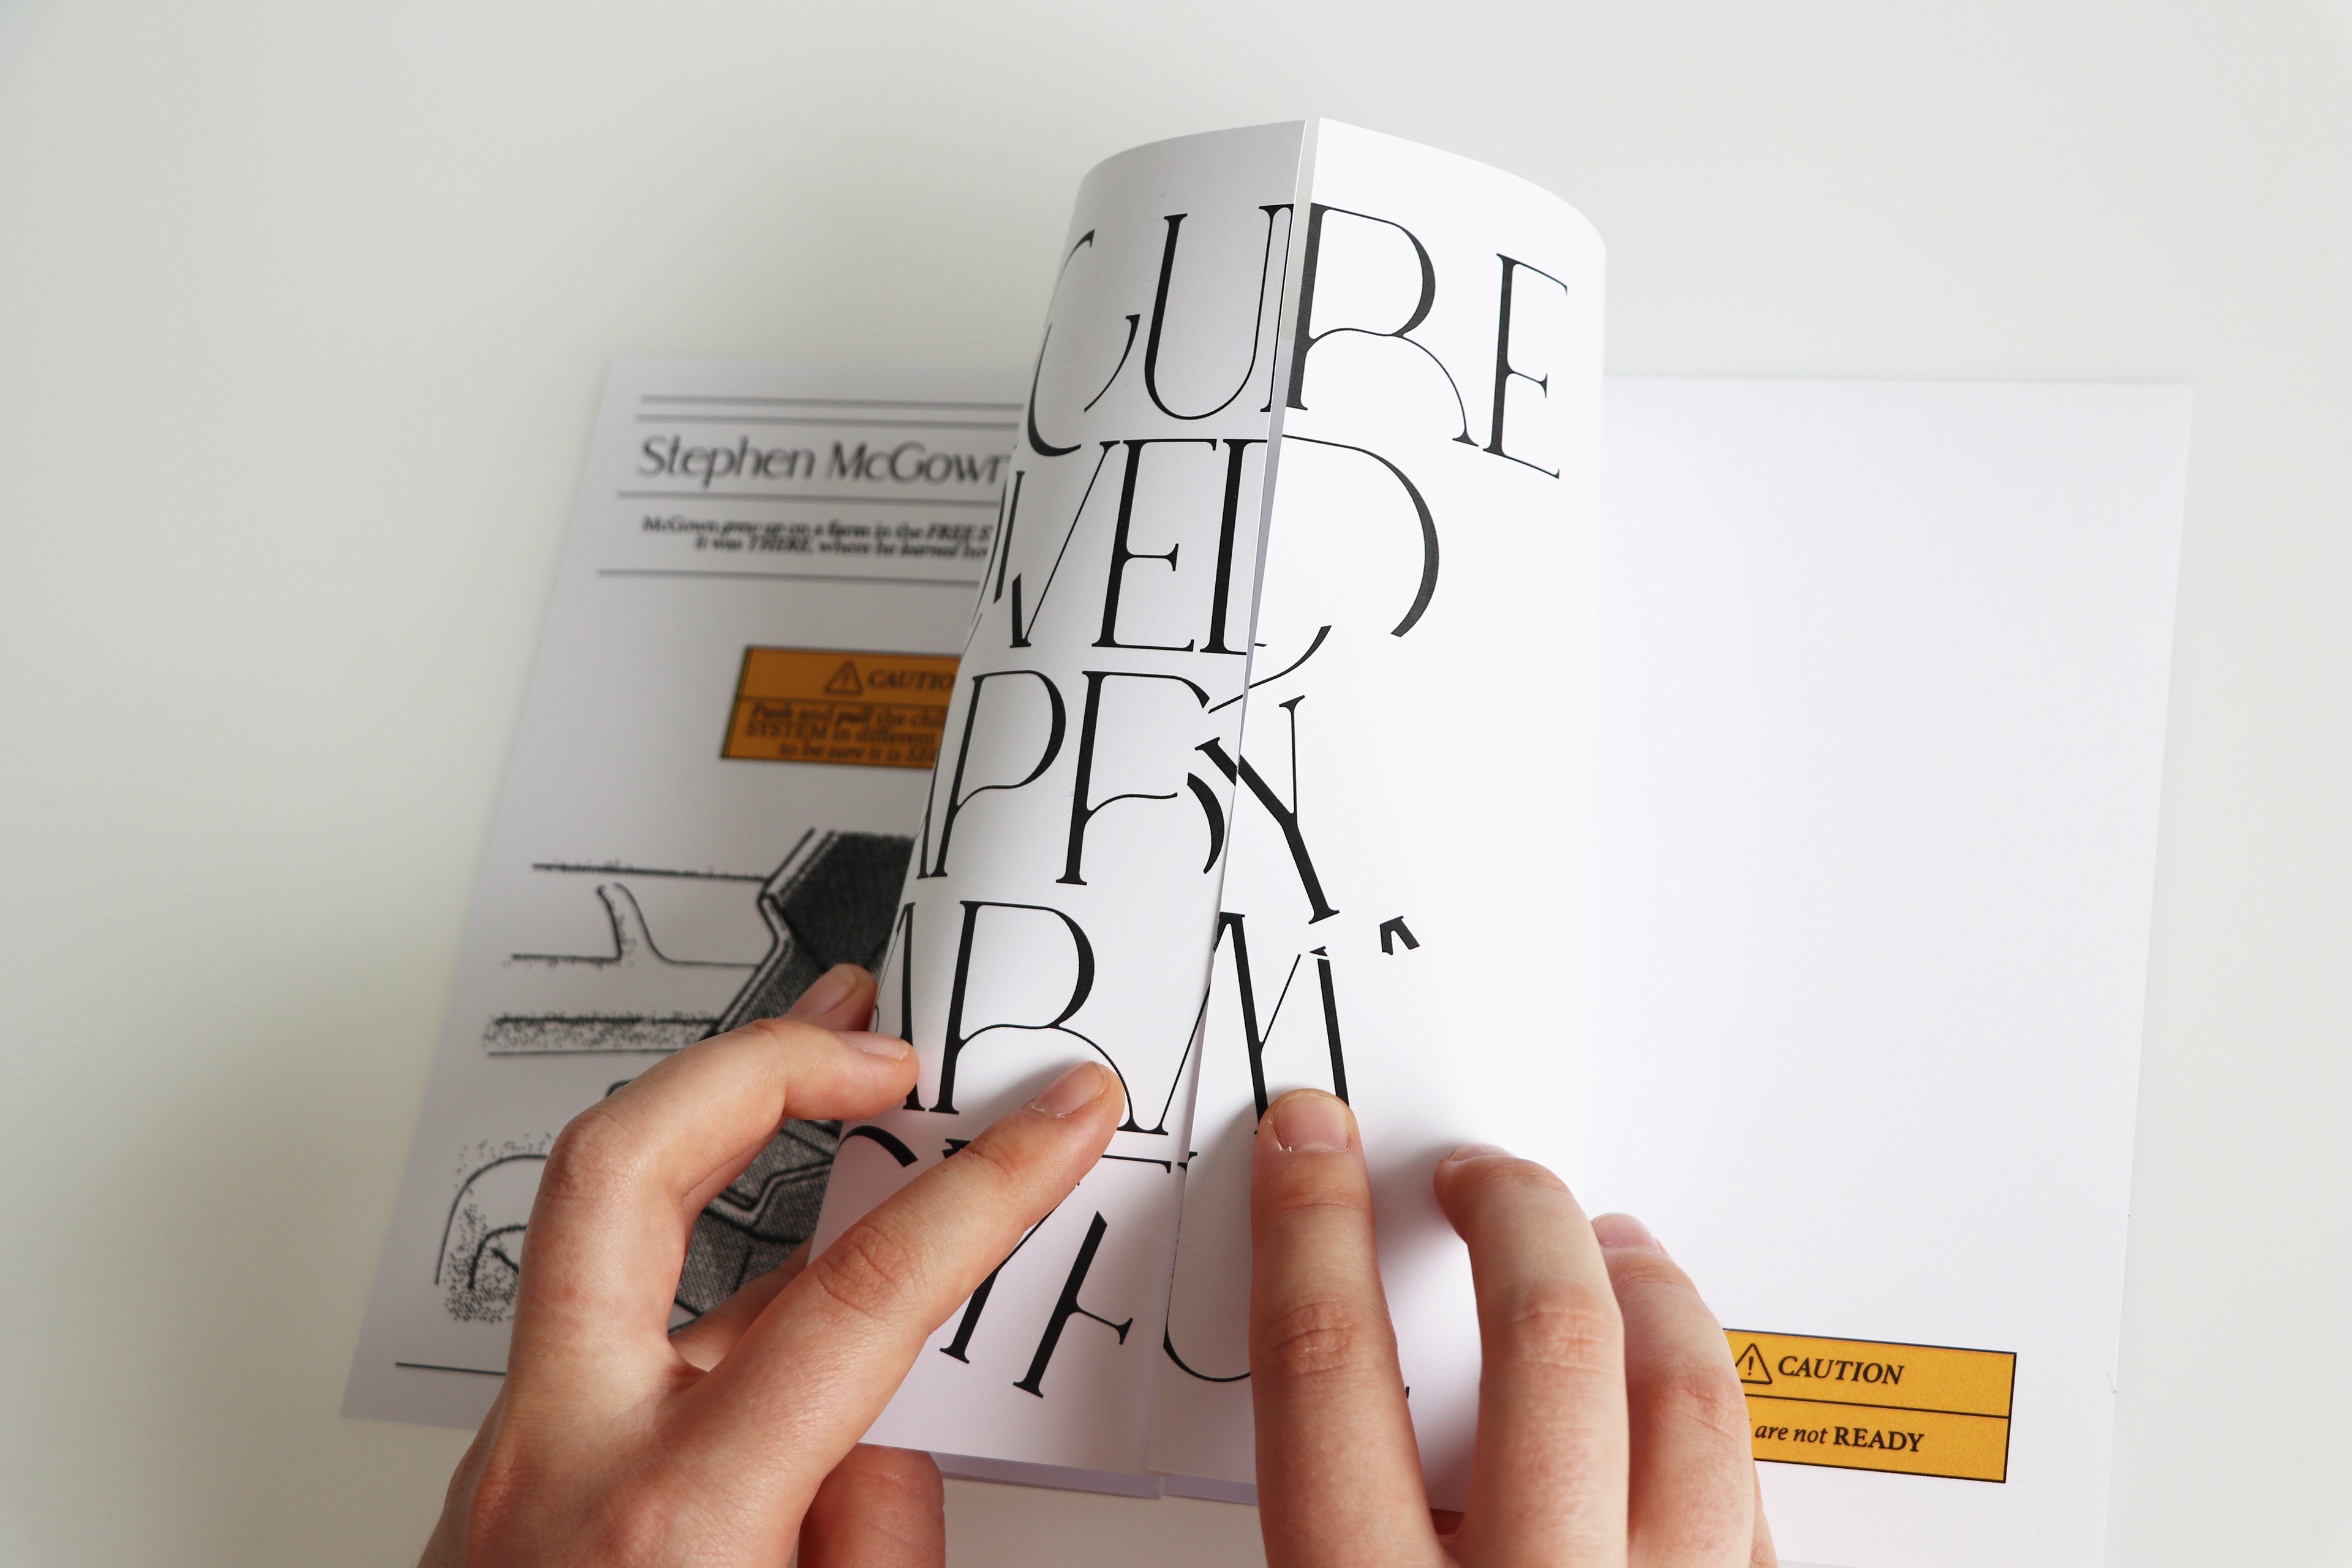 Stephen McGown
McGown grew up on a farm in the FREE S
It was THERE, where he learned ho
CAUTIO
Push and pull the chil
SYSTEM in different
to be sure it is SE
CURE
VED
APPY
ARM
CAUTION
are not READY